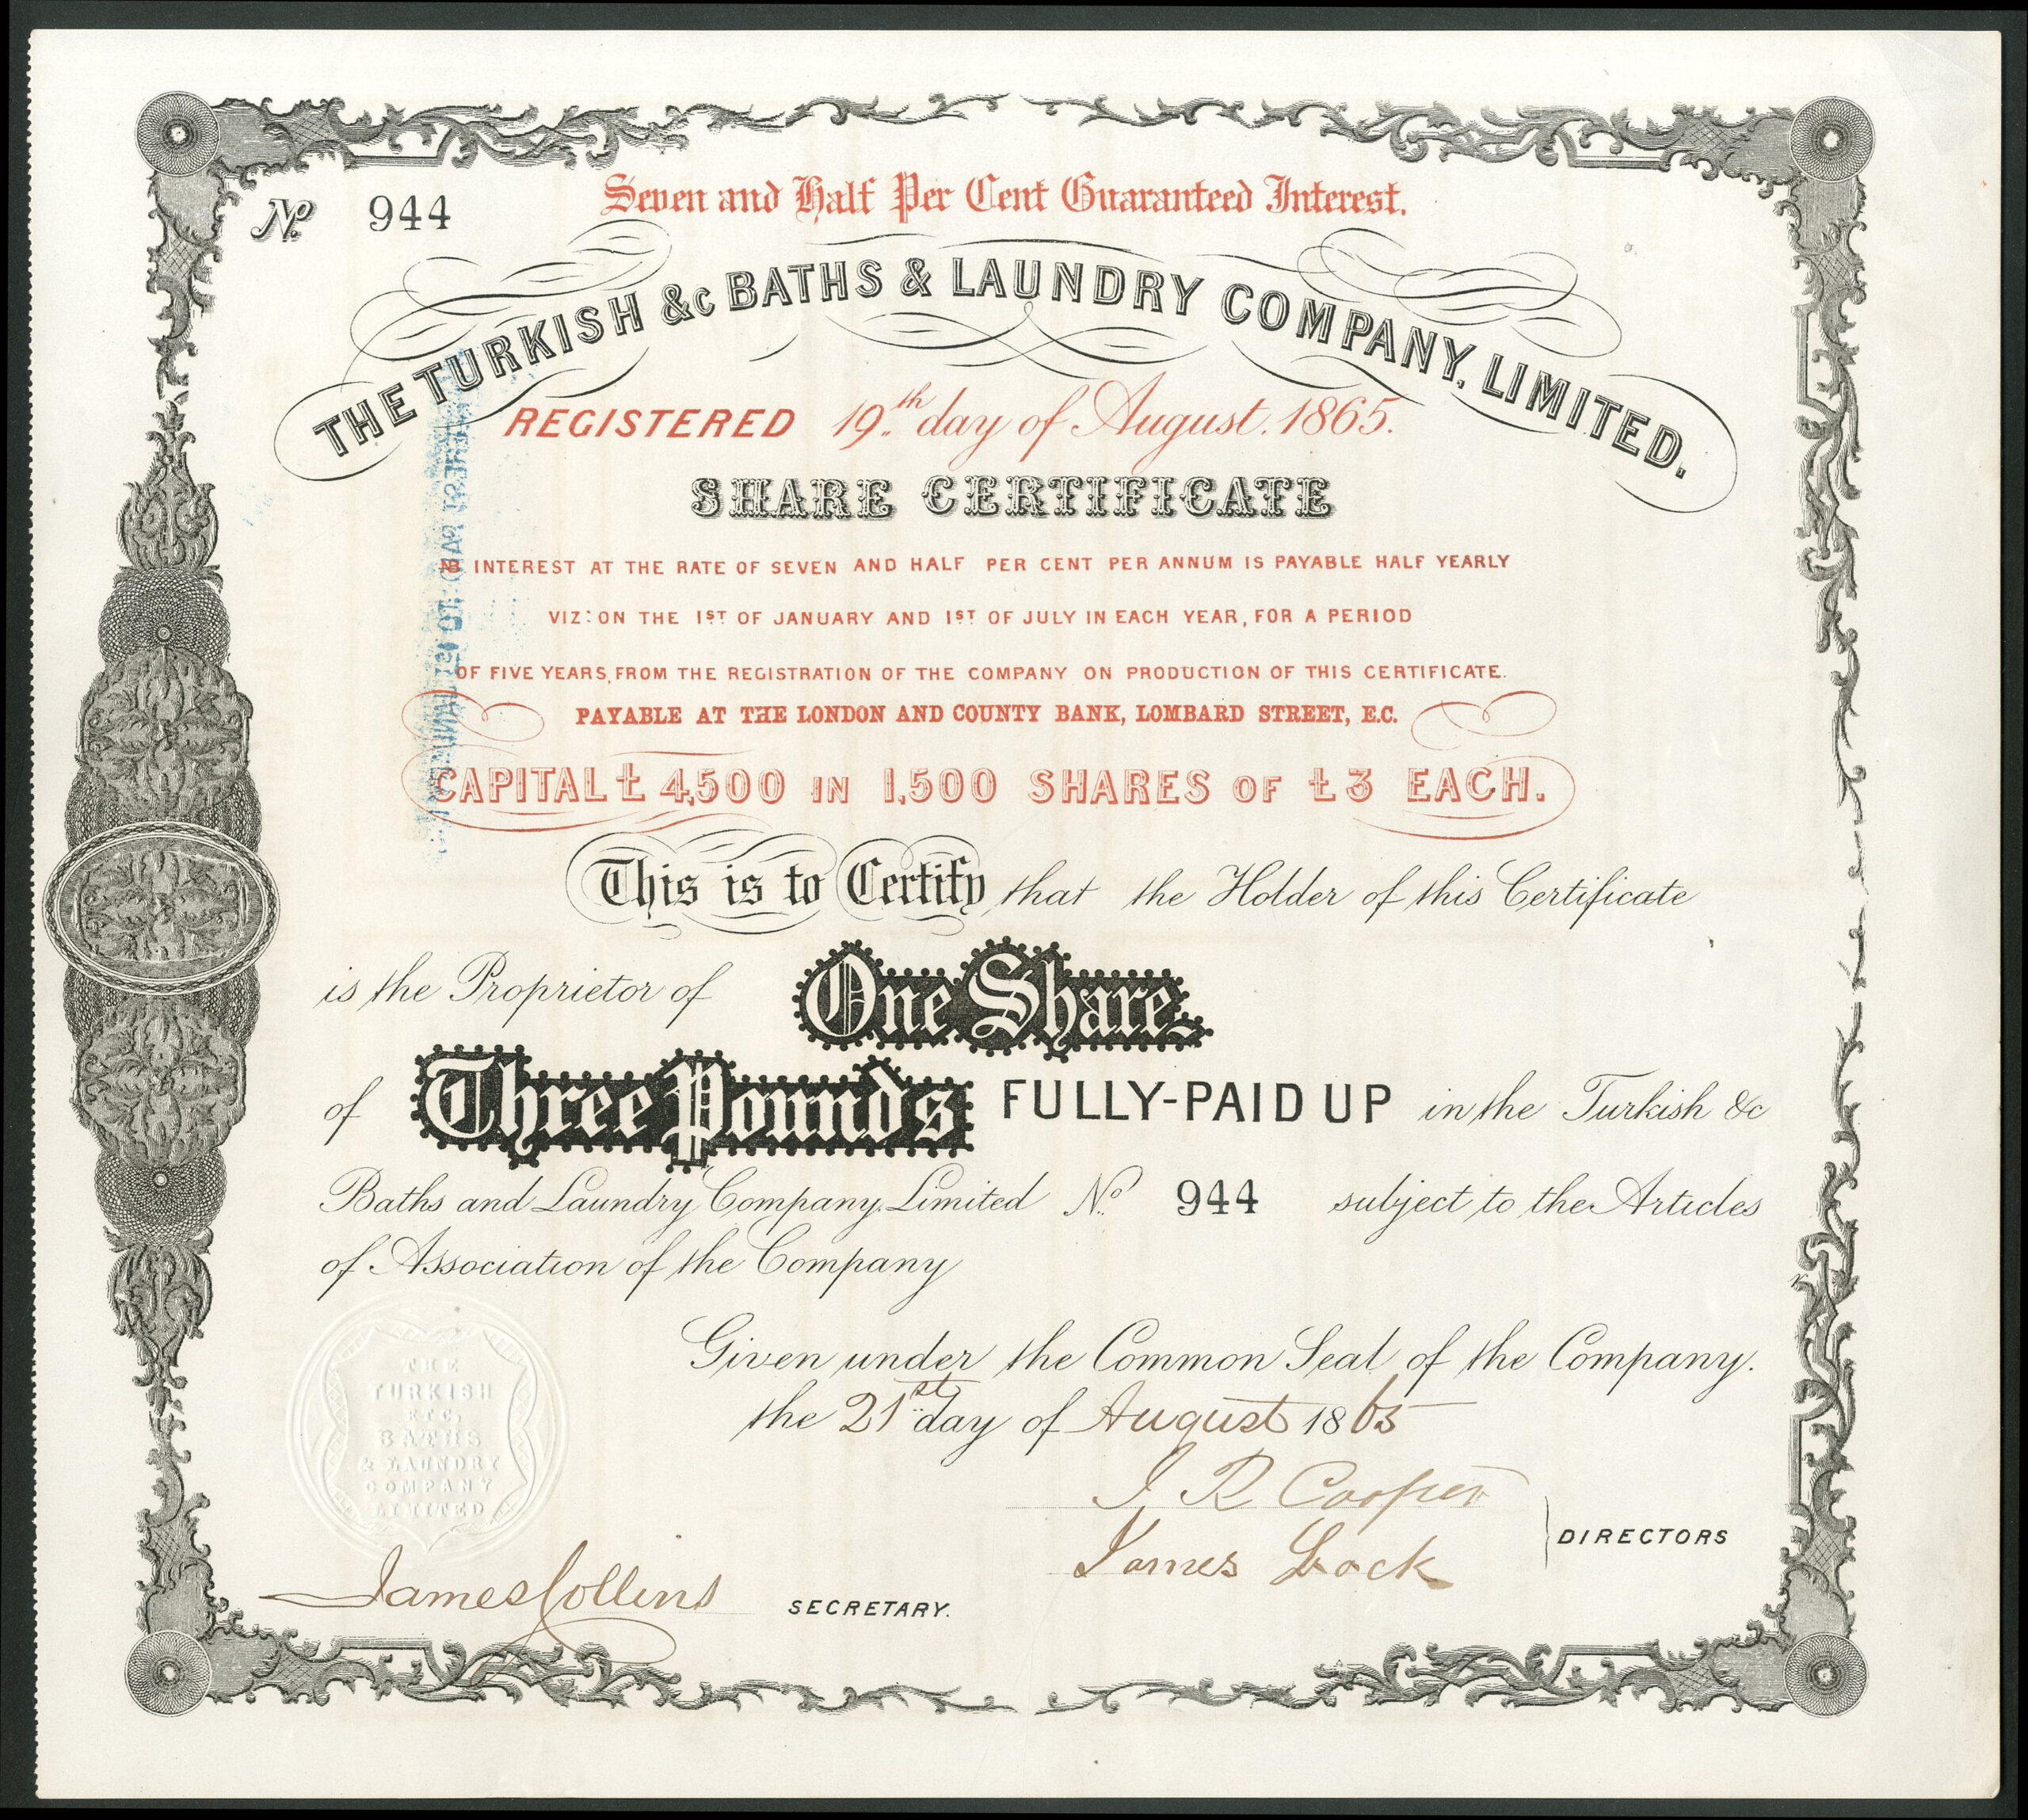 No. 944
Seven and Half Per Cent Guaranteed Interest.
THE TURKISH &c BATHS & LAUNDRY COMPANY, LIMITED.
REGISTERED 19th day of August. 1865.
SHARE CERTIFICATE
NB INTEREST AT THE RATE OF SEVEN AND HALF PER CENT PER ANNUM IS PAYABLE HALF YEARLY
VIZ: ON THE 1ST OF JANUARY AND 1ST OF JULY IN EACH YEAR, FOR A PERIOD
OF FIVE YEARS, FROM THE REGISTRATION OF THE COMPANY ON PRODUCTION OF THIS CERTIFICATE.
PAYABLE AT THE LONDON AND COUNTY BANK, LOMBARD STREET, E.C.
CAPITAL £ 4,500 IN 1,500 SHARES OF £3 EACH.
This is to Certify that the Holder of this Certificate
is the Proprietor of One Share
of Three Pounds FULLY-PAID UP in the Turkish &c
Baths and Laundry Company, Limited No. 944 subject to the Articles
of Association of the Company
Given under the Common Seal of the Company.
the 21st day of August 1865
THE
TURKISH
ETC.
BATHS
& LAUNDRY
COMPANY
LIMITED
J R Cooper
James Lock
DIRECTORS
James Collins SECRETARY.